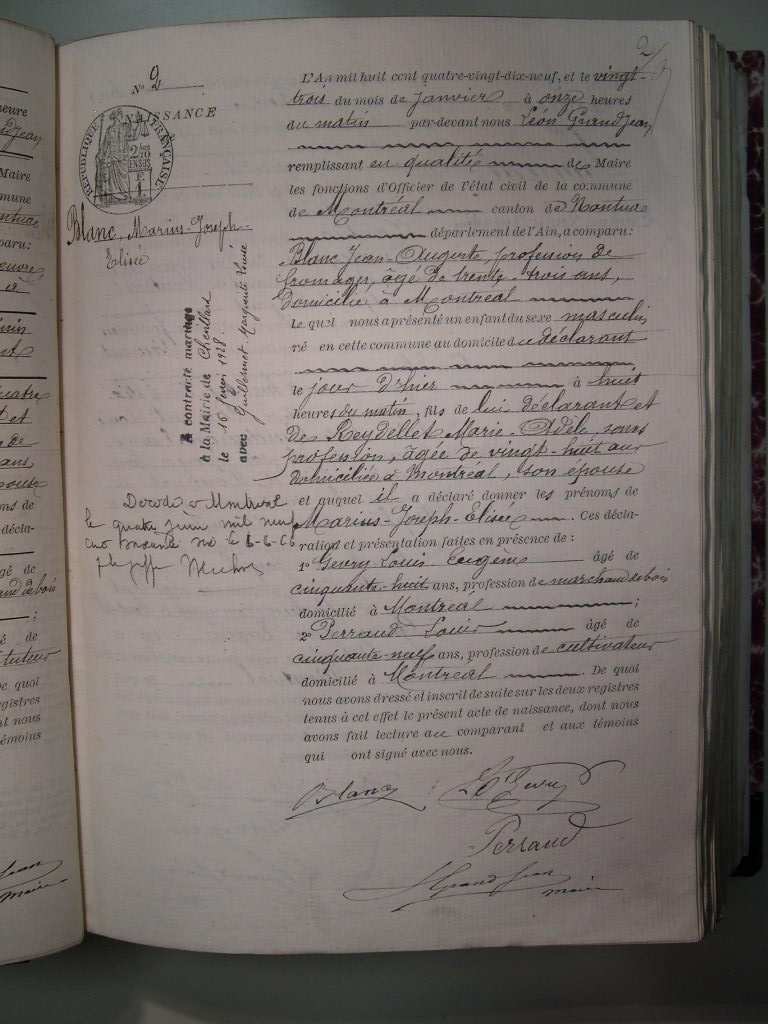 2
N° 2
NAISSANCE
RÉPUBLIQUE FRANÇAISE
2/10
EN SUS
Blanc, Marius-Joseph-
Elisée
A contracté mariage
à la Mairie de
le 16 1928
avec Guillermet Marguerite
Décédé à Montréal
le quatre juin mil neuf
cent soixante
L'An mil huit cent quatre-vingt-dix-neuf, et le vingt-
trois du mois de Janvier à onze heures
du matin par-devant nous Léon Grandjean
remplissant en qualité de Maire
les fonctions d'Officier de l'état civil de la commune
de Montréal canton de Nantua
département de l'Ain, a comparu:
Blanc Jean-Auguste, profession de
fromager, âgé de trente-trois ans,
domicilié à Montréal
Lequel nous a présenté un enfant du sexe masculin
né en cette commune au domicile du déclarant
le jour d'hier à huit
heures du matin, fils de lui déclarant et
de Reydellet Marie-Adèle, sans
profession, âgée de vingt-huit ans
domiciliée à Montréal, son épouse
et auquel il a déclaré donner les prénoms de
Marius-Joseph-Elisée. Ces décla-
ration et présentation faites en présence de :
1° Gevry Louis Eugène âgé de
cinquante-huit ans, profession de marchand de bois
domicilié à Montréal ;
2° Perraud Louis âgé de
cinquante-neuf ans, profession de cultivateur
domicilié à Montréal. De quoi
nous avons dressé et inscrit de suite sur les deux registres
tenus à cet effet le présent acte de naissance, dont nous
avons fait lecture au comparant et aux témoins
qui ont signé avec nous.
Blanc Gevry
Perraud
Grandjean
maire